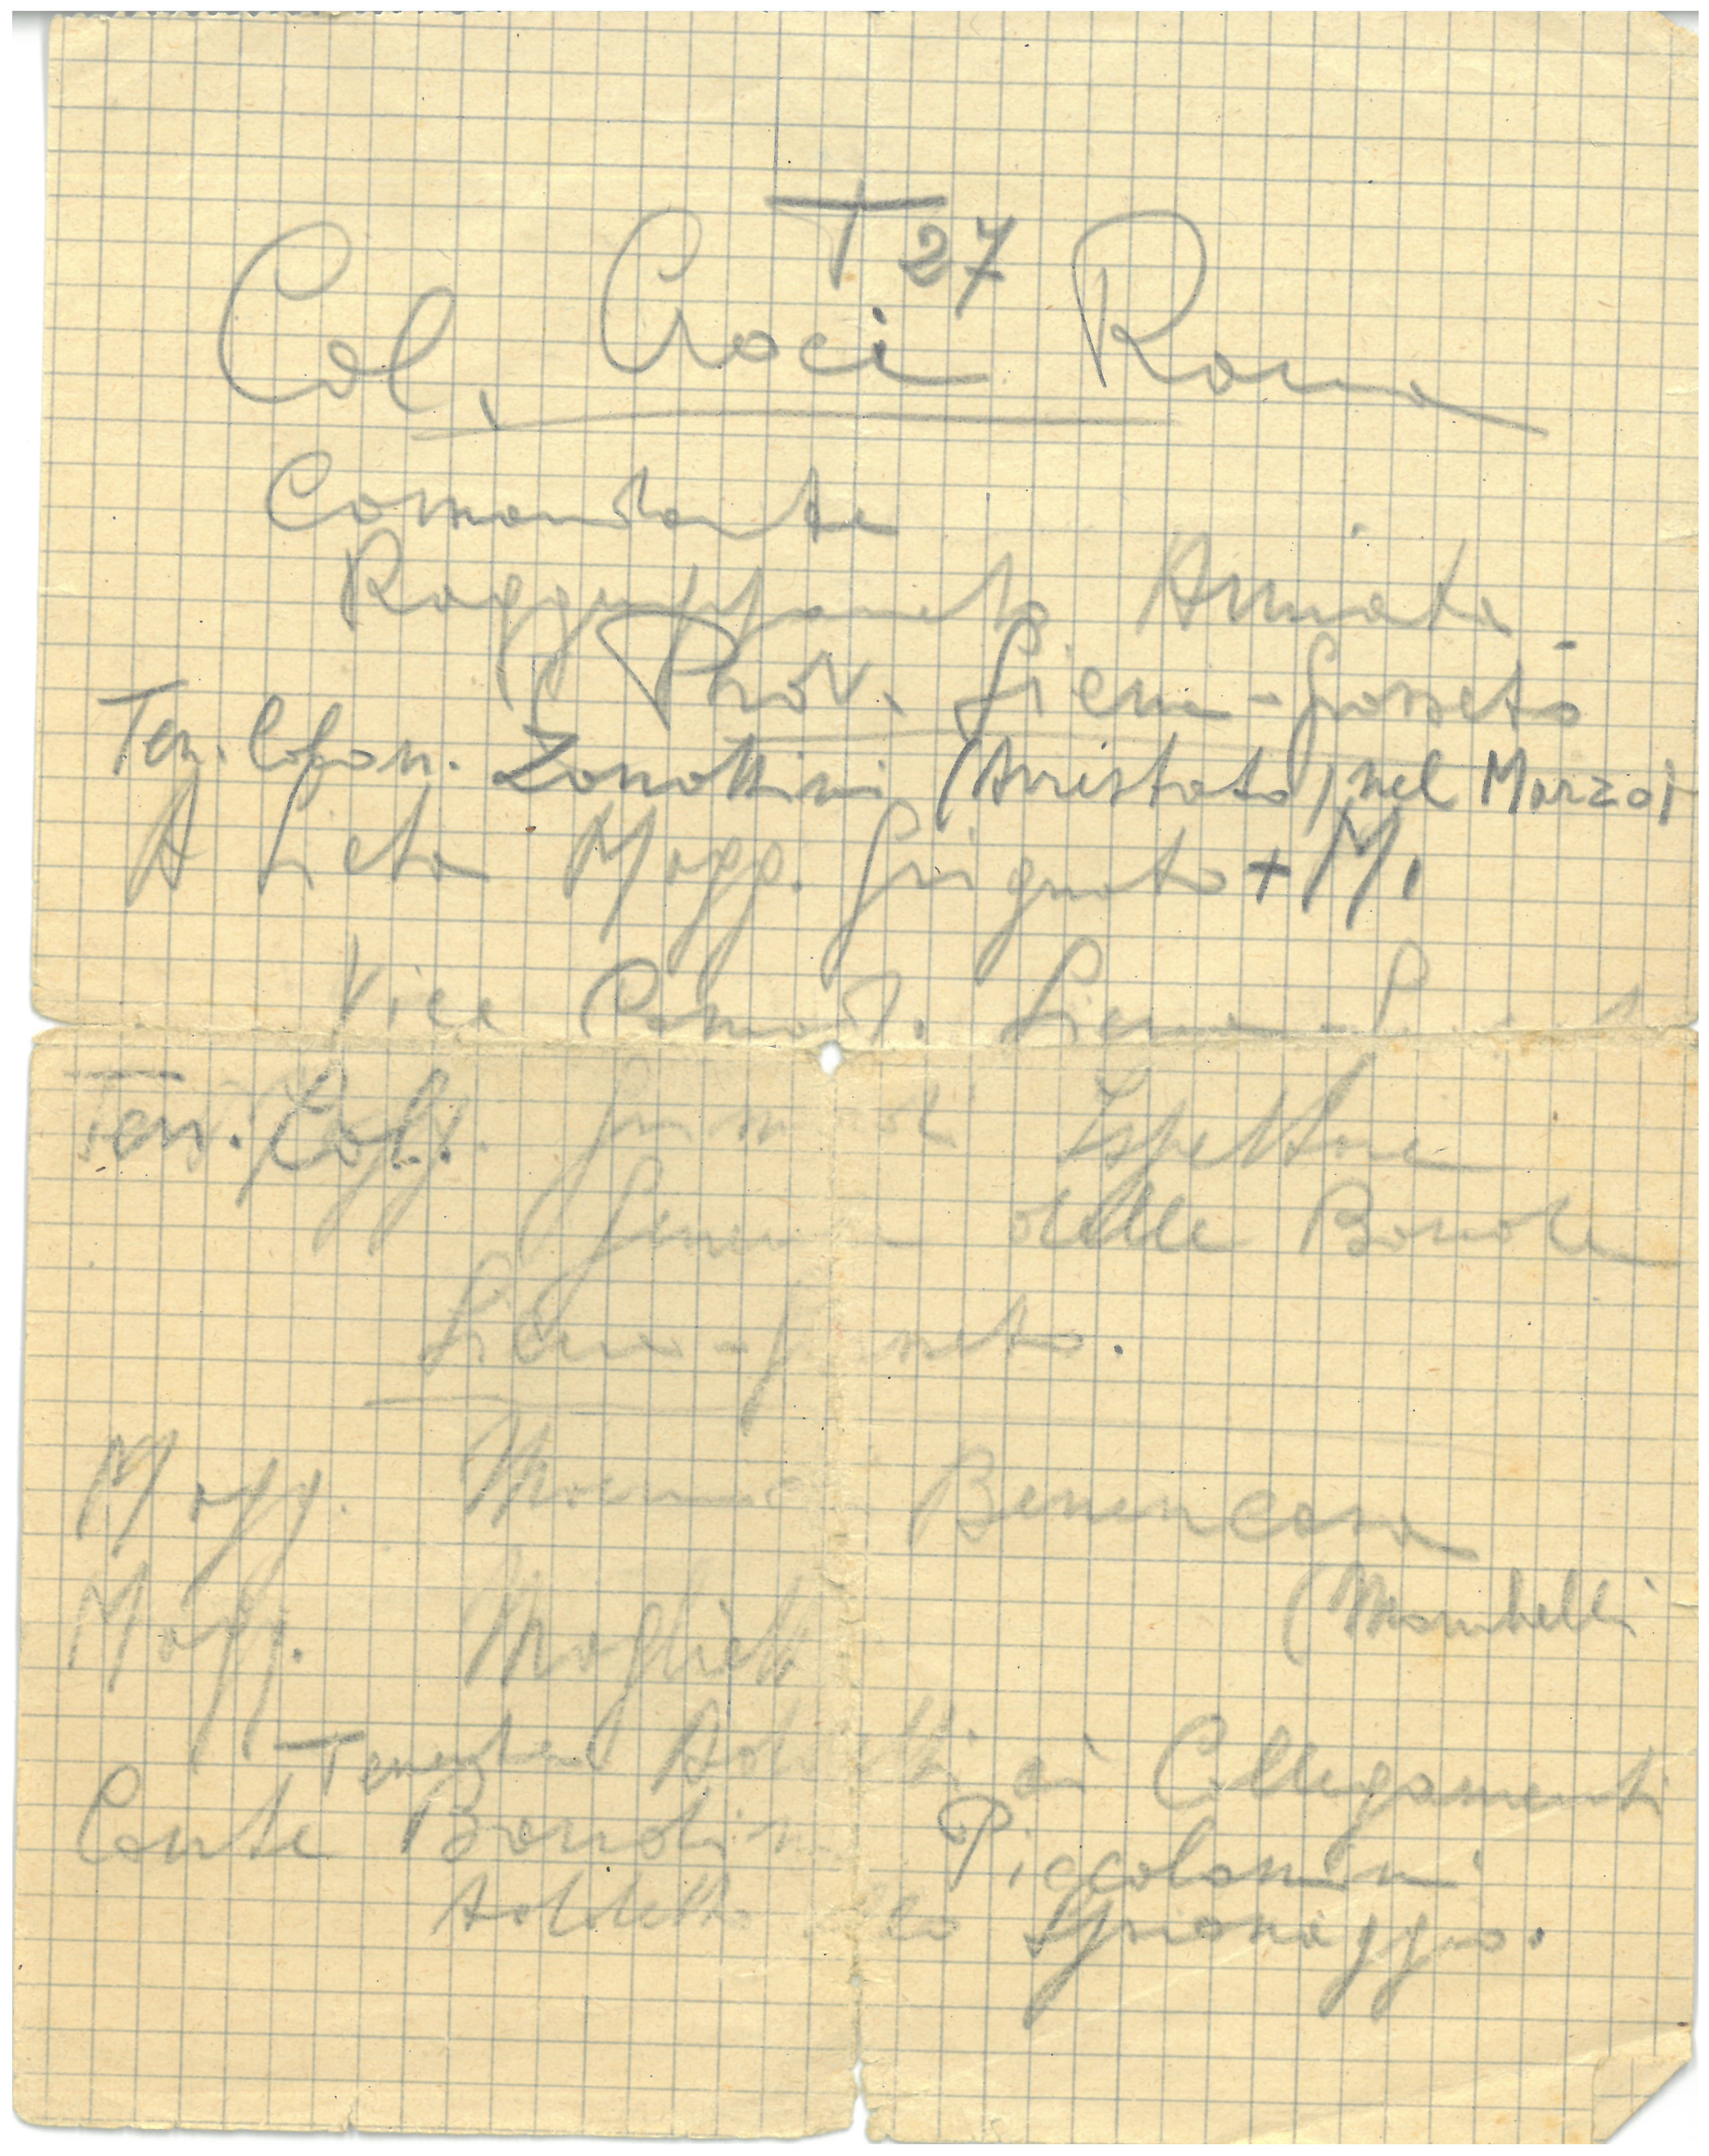 T 27
Col. Croci Roma
Comandante
Raggruppamento Amiata
Prov. Siena - Grosseto
Ten. Colon. Zonottini (Arrestato) nel Marzo
A Lieto Magg. Grignato + M.
Vice Comand. Siena -
Ten. Col. Ispettore
delle Bande
Siena -
Magg. Benencasa
(Mambelli
Magg.
Tenente ai Collegamenti
Conte Bandini Piccolomini
Addetto allo Spionaggio.